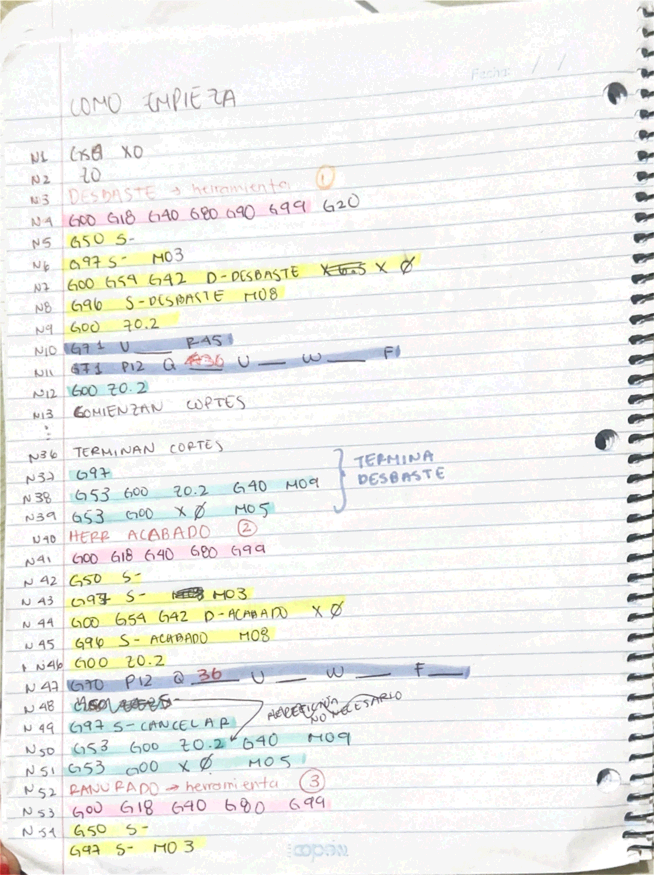 Fecha: / /
COMO EMPIEZA
N1 G50 X0
N2 Z0
N3 DESBASTE → herramienta 1
N4 G00 G18 G40 G80 G90 G99 G20
N5 G50 S-
N6 G97 S- M03
N7 G00 G54 G42 D-DESBASTE X Ø
N8 G96 S-DESBASTE M08
N9 G00 Z0.2
N10 G71 U___ R45
N11 G71 P12 Q 36 U ___ W ___ F
N12 G00 Z0.2
N13 COMIENZAN CORTES
⋮
N36 TERMINAN CORTES
N37 G97
N38 G53 G00 Z0.2 G40 M09
N39 G53 G00 X Ø M05
TERMINA
DESBASTE
N40 HERR ACABADO 2
N41 G00 G18 G40 G80 G99
N42 G50 S-
N43 G97 S- M03
N44 G00 G54 G42 D-ACABADO X Ø
N45 G96 S-ACABADO M08
N46 G00 Z0.2
N47 G70 P12 Q 36 U ___ W ___ F ___
N48
NO NECESARIO
N49 G97 S-CANCELAR
N50 G53 G00 Z0.2 G40 M09
N51 G53 G00 X Ø M05
N52 RANURADO → herramienta 3
N53 G00 G18 G40 G80 G99
N54 G50 S-
G97 S- M03